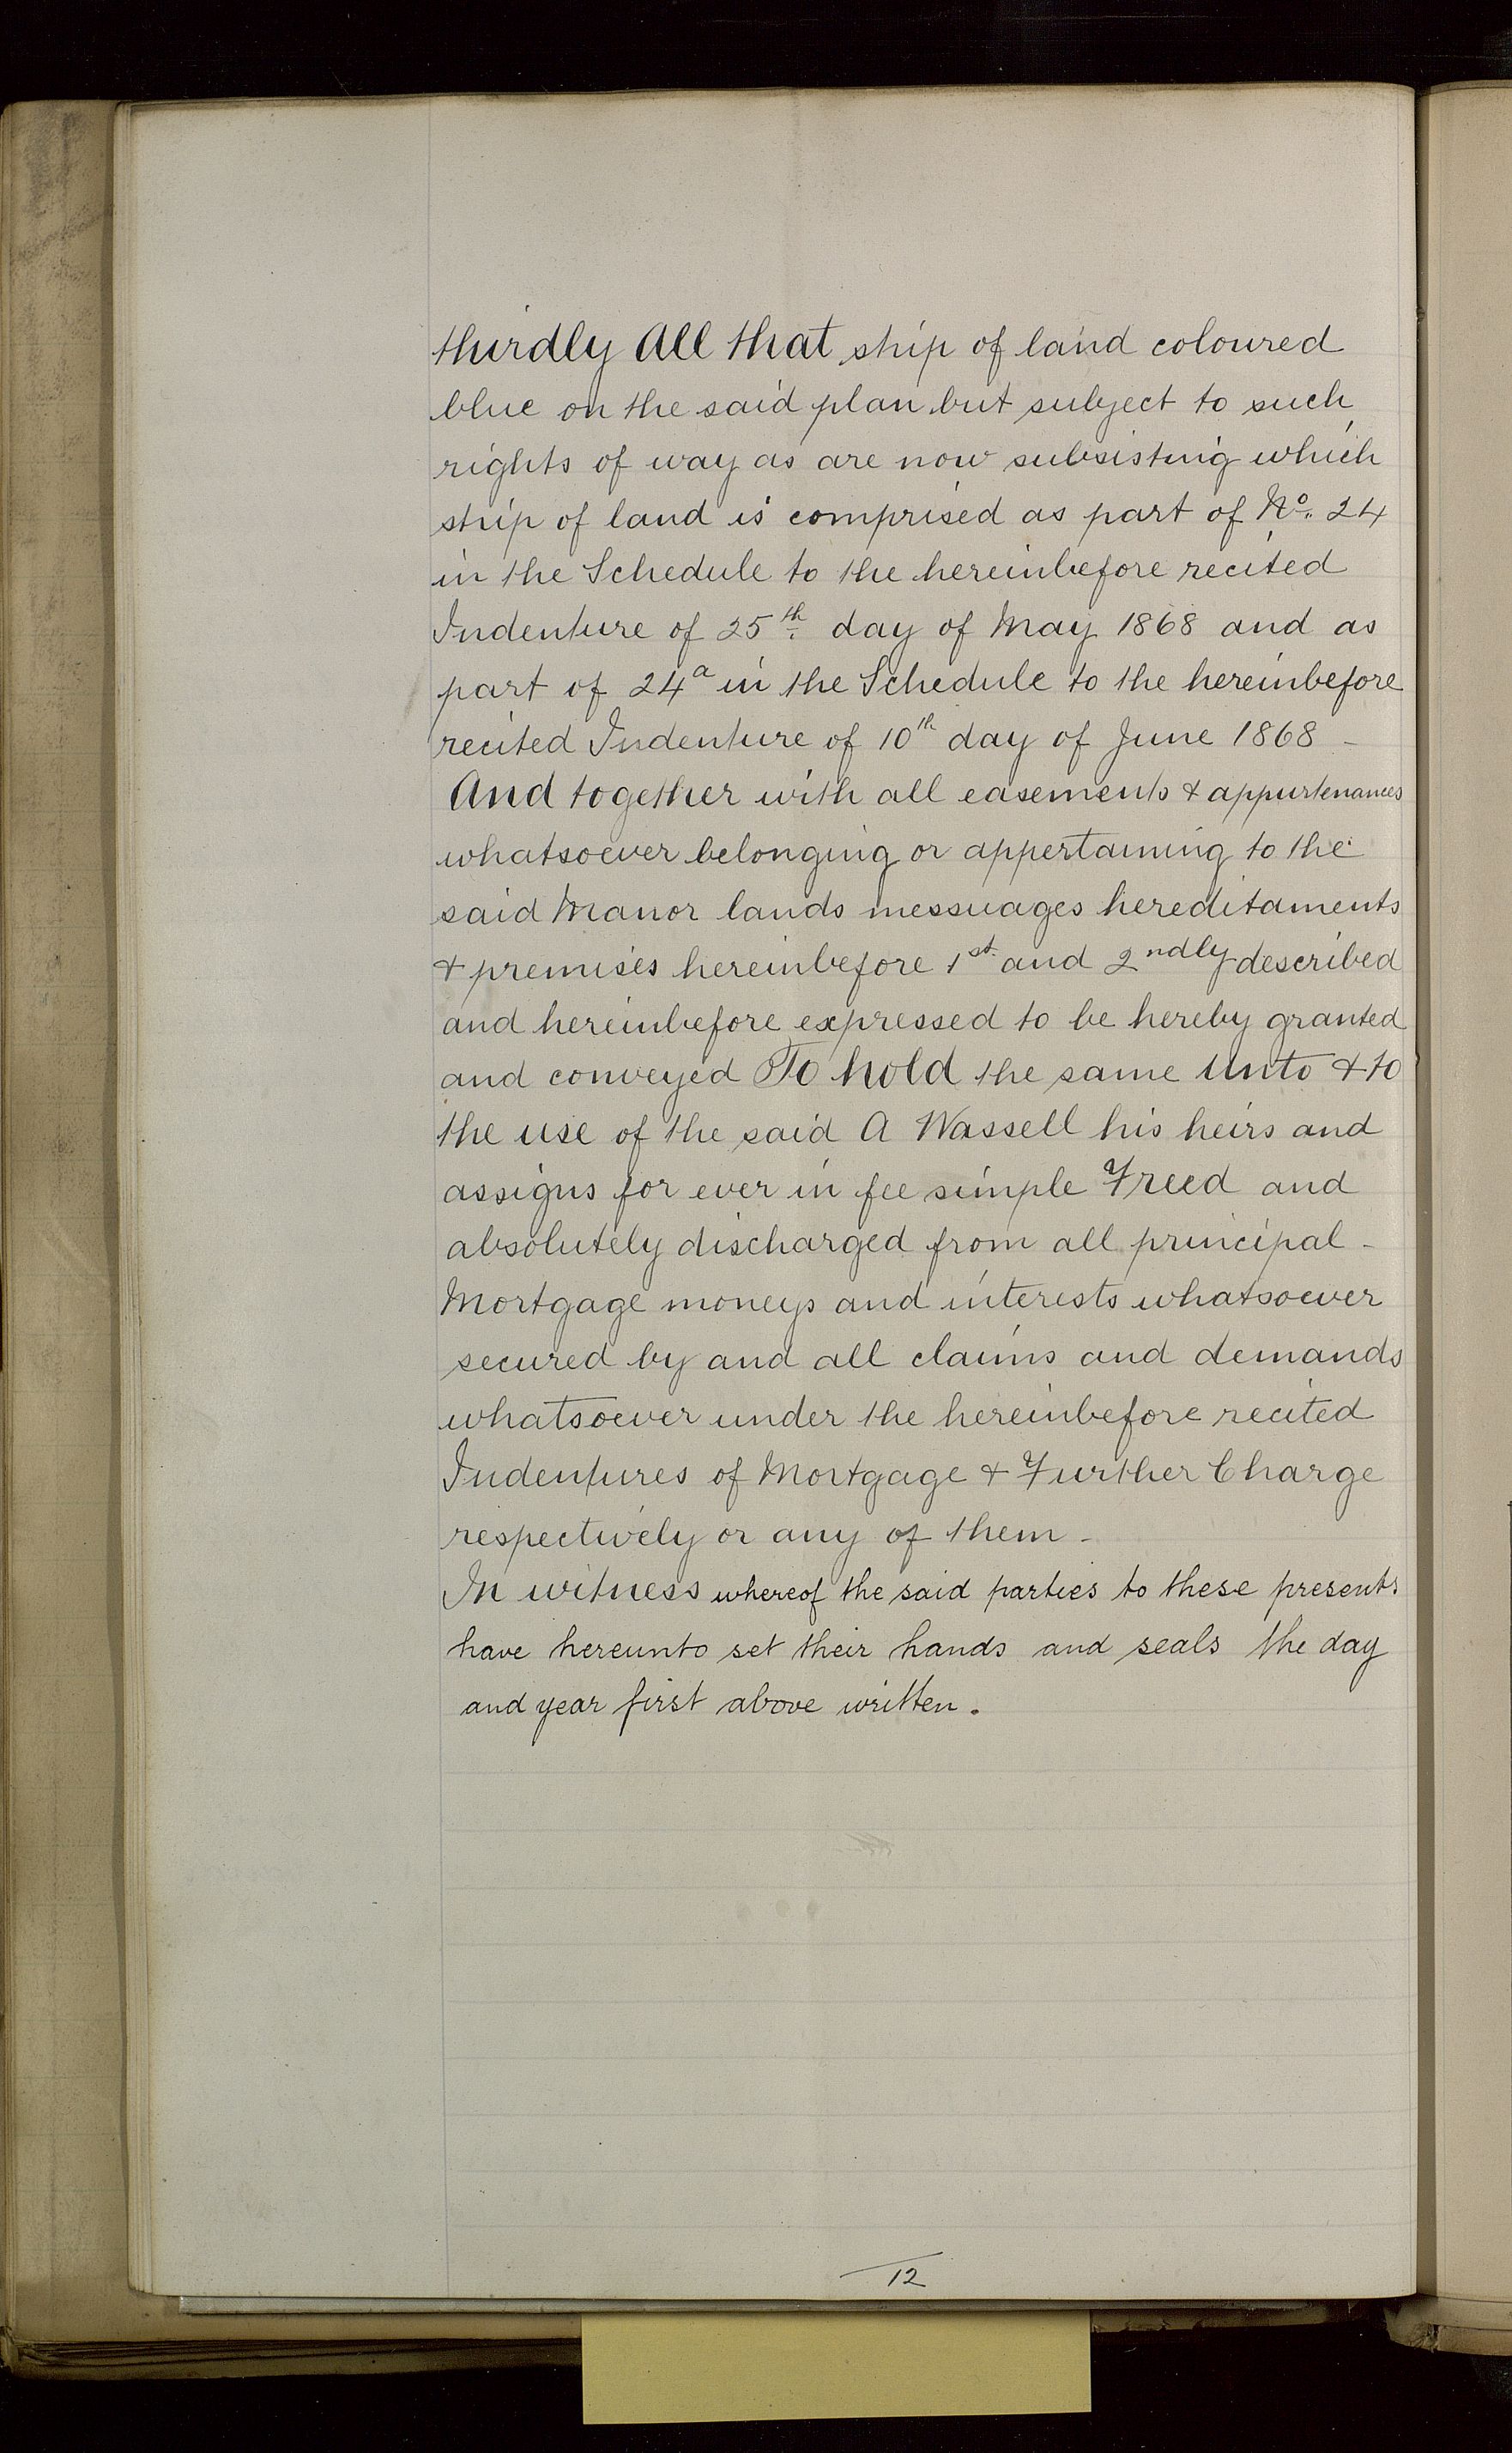 thirdly All that strip of land coloured
blue on the said plan but subject to such
rights of way as are now subsisting which
strip of land is comprised as part of Nº. 24
in the Schedule to the hereinbefore recited
Indenture of 25th day of May 1868 and as
part of 24a in the Schedule to the hereinbefore
recited Indenture of 10th day of June 1868 -
And together with all easements & appurtenances
whatsoever belonging or appertaining to the
said Manor lands messuages hereditaments
& premises hereinbefore 1st and 2ndly described
and hereinbefore expressed to be hereby granted
and conveyed To hold the same Unto & to
the use of the said A Wassell his heirs and
assigns for ever in fee simple Freed and
absolutely discharged from all principal -
Mortgage moneys and interests whatsoever
secured by and all claims and demands
whatsoever under the hereinbefore recited
Indentures of Mortgage & Further Charge
respectively or any of them -
In witness whereof the said parties to these presents
have hereunto set their hands and seals the day
and year first above written.
12